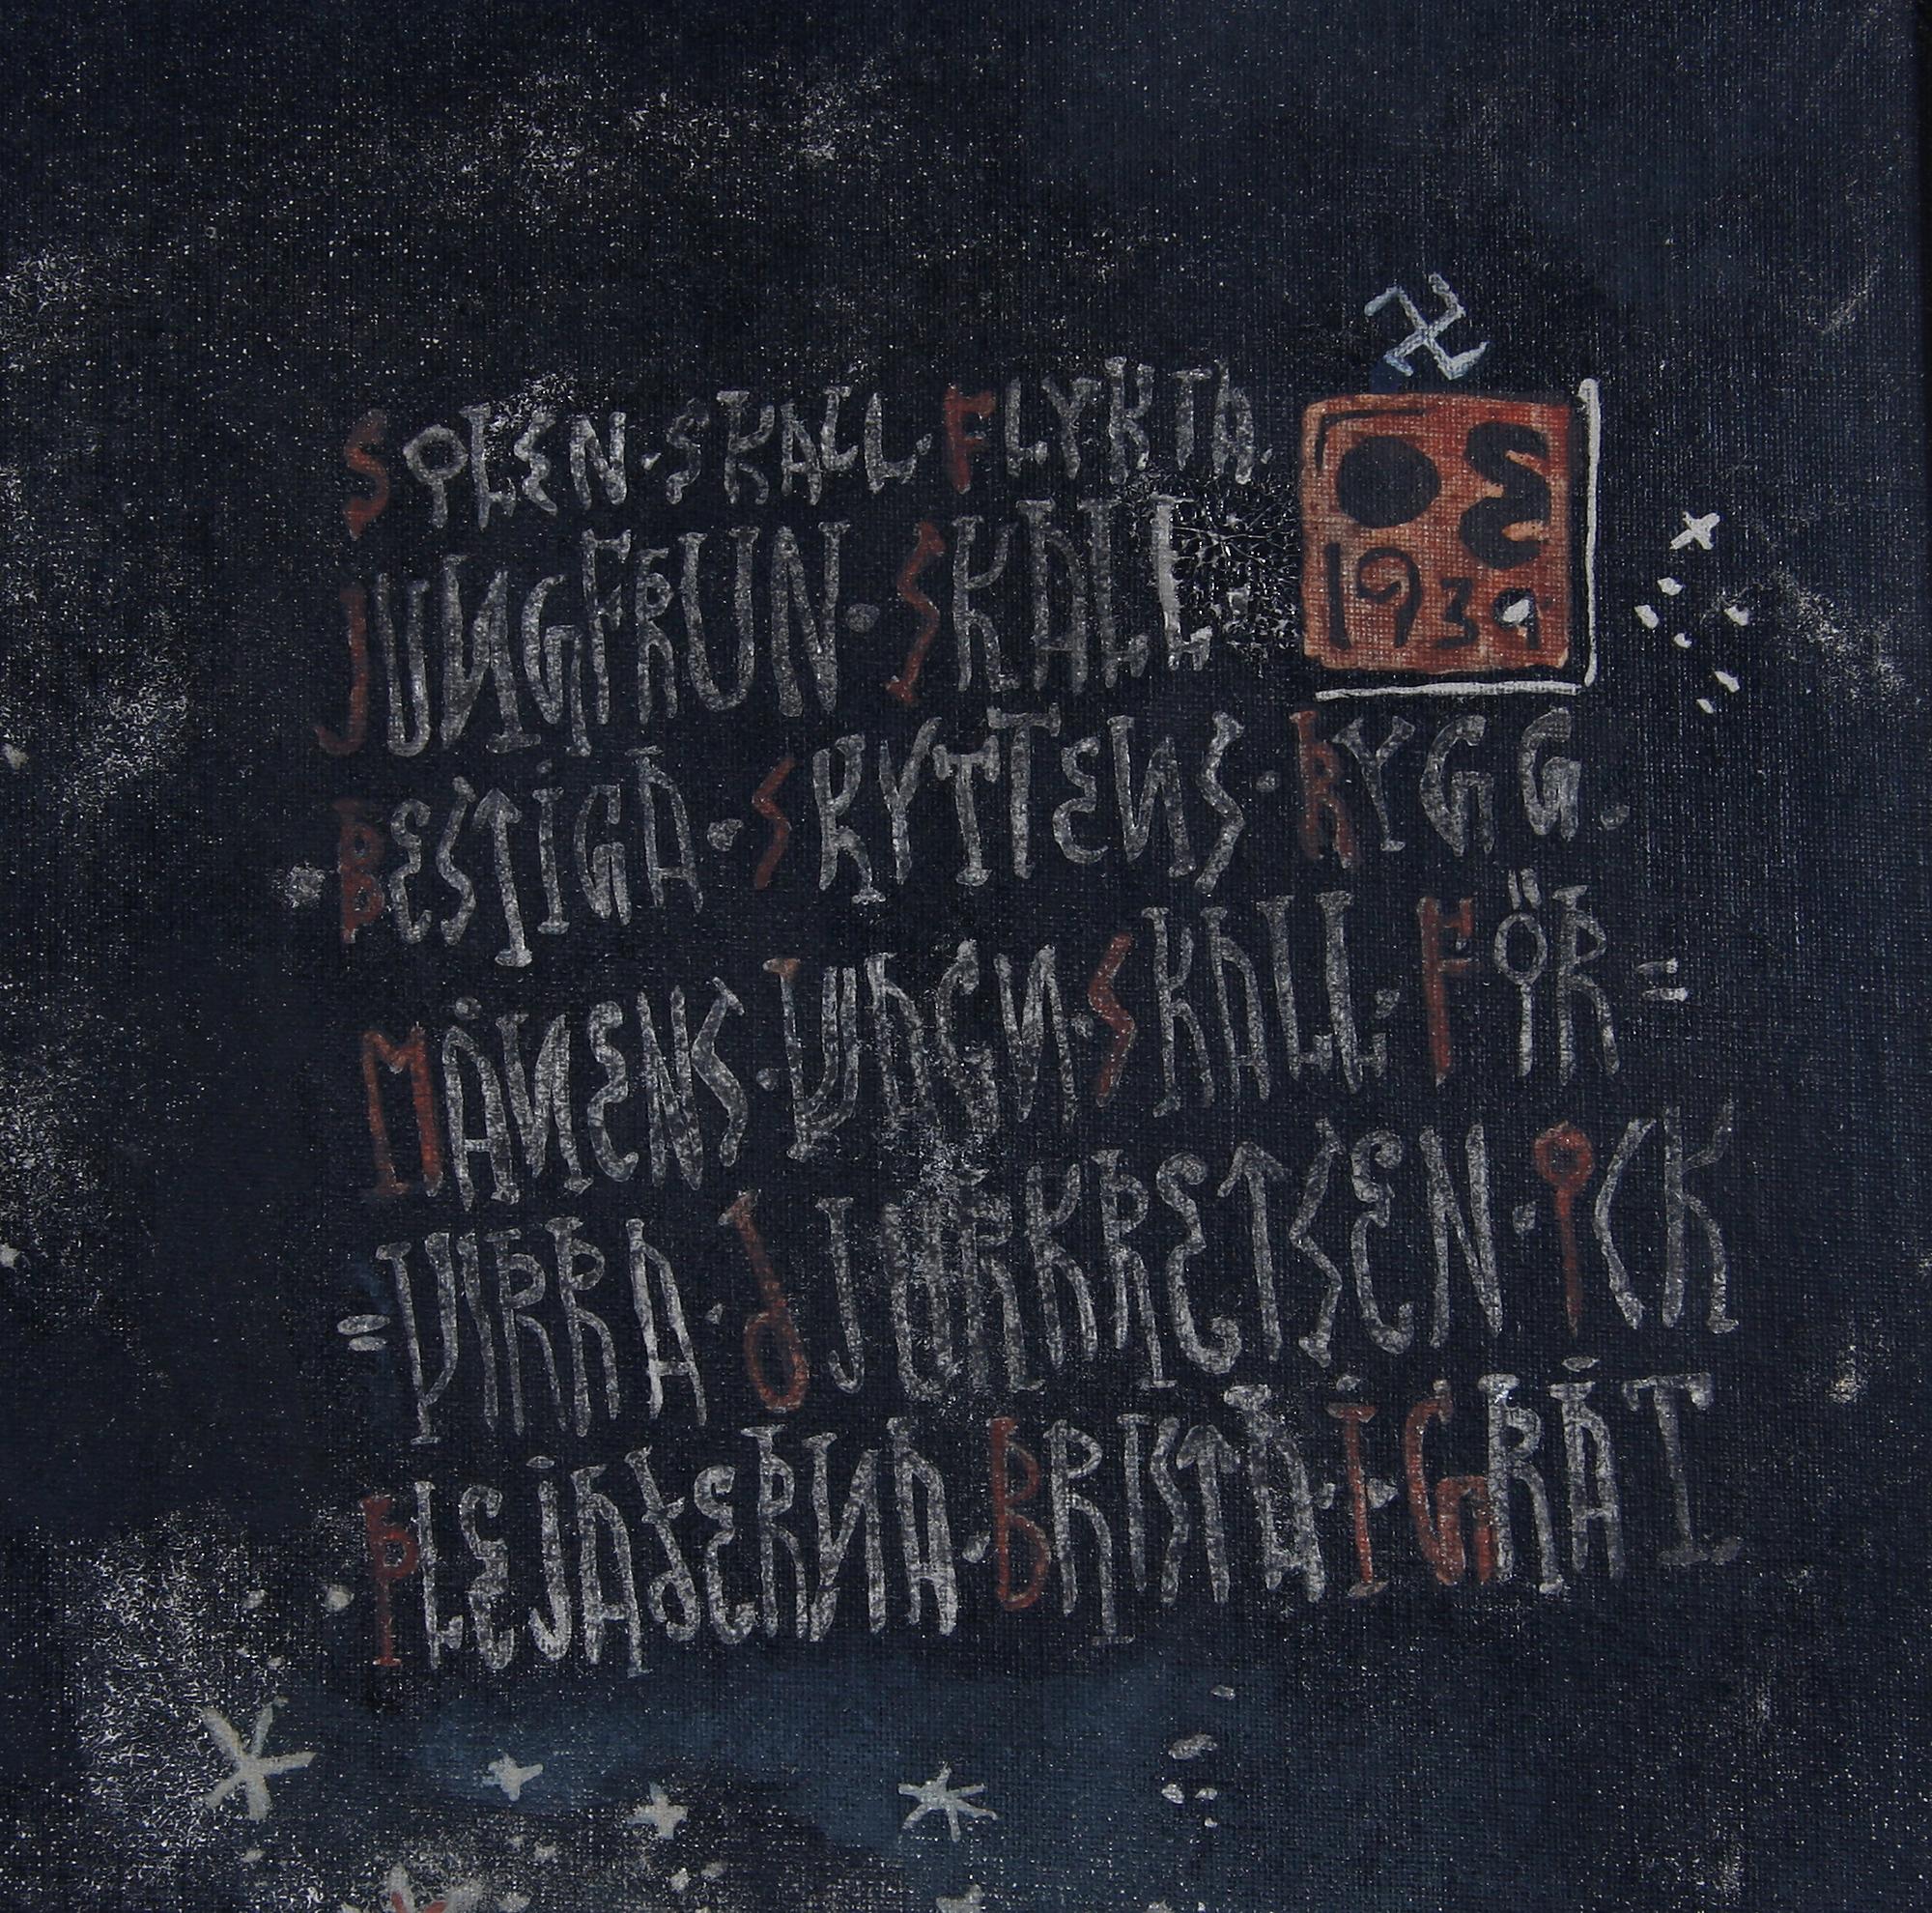 SOLEN·SKALL·FLYKTA.
JUNGFRUN·SKALL
BESTIGA·SKYTTENS·RYGG.
MÅNENS·VAGN·SKALL·FÖR=
=VIRRA·DJURKRETSEN·OCK
PLEJADERNA·BRISTA·I·GRÅT.
1939